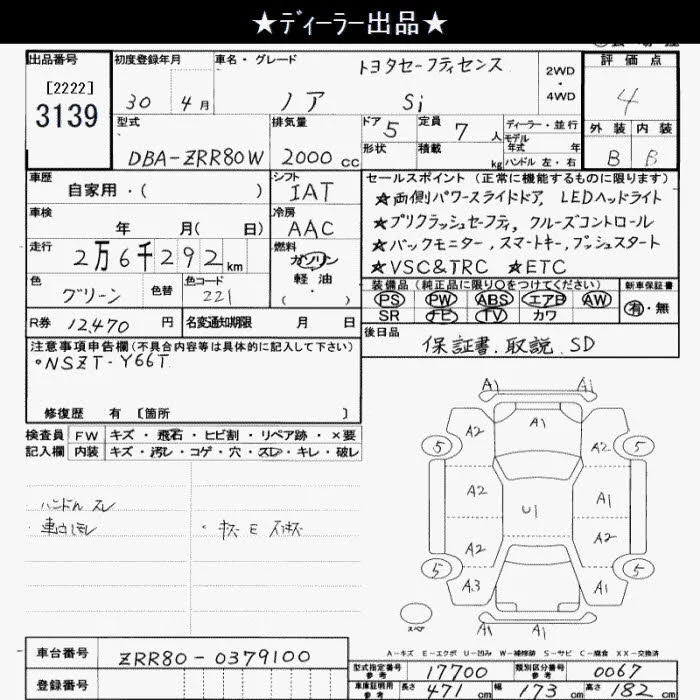 ★ディーラー出品★
出品番号
[2222]
3139
初度登録年月
30年 4月
車名・グレード
トヨタセーフティセンス
ノア Si
2WD
・
4WD
評価点
4
外装 内装
B B
型式
DBA-ZRR80W
排気量
2000 cc
ドア 5
定員 7 人
形状
積載 kg
ディーラー・並行
モデル
年式 年
ハンドル 左・右
車歴
自家用・( )
シフト
IAT
車検
年 月( 日)
冷房
AAC
走行
2万6千292km
燃料
ガソリン
軽油
( ・ )
色
グリーン
色替
色コード
221
R券 12,470 円
名変通知期限 月 日
セールスポイント (正常に機能するものに限ります)
★両側パワースライドドア, LEDヘッドライト
★プリクラッシュセーフティ, クルーズコントロール
★バックモニター, スマートキー, プッシュスタート
★VSC&TRC ★ETC
装備品 (純正品に限り○をつけてください)
新車保証書
PS PW ABS エアB AW
SR ナビ TV カワ
有・無
後日品
保証書. 取説. SD
注意事項申告欄(不具合内容等は具体的に記入して下さい)
・NSZT-Y66T
修復歴 有 [箇所 ]
検査員 FW キズ・飛石・ヒビ割・リペア跡・×要
記入欄 内装 キズ・汚レ・コゲ・穴・スレ・キレ・破レ
ハンドル スレ
A1 A1
A2 A1 A2
5 5
A2 U1 A1
A2 A2
5 5
A3 A1
A1 A1
スペア
A-キズ E-エクボ U-凹み W-補修跡 S-サビ C-腐食 XX-交換済
車台番号 ZRR80-0379100
登録番号
型式指定番号 参考 17700
類別区分番号 参考 0067
車庫証明用 参考 長さ 471 cm 幅 173 cm 高さ 182 cm